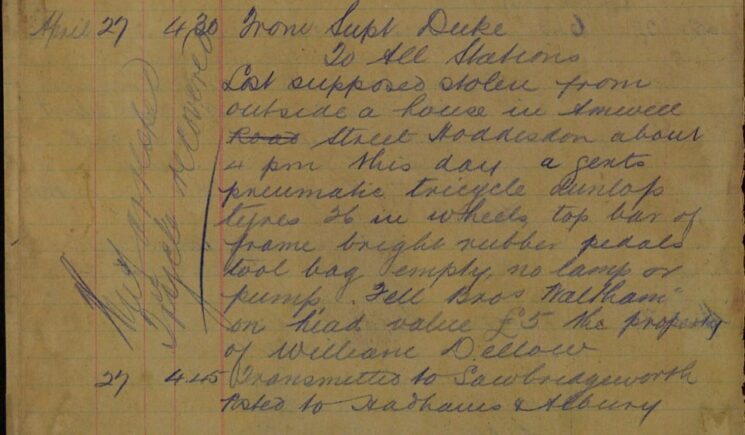 April 27 4.30 From Supt Duke
To All Stations
Lost supposed stolen from
outside a house in Amwell
Road Street Hoddesdon about
4 pm this day a gents
pneumatic tricycle Dunlop
tyres 26 in wheels top bar of
frame bright rubber pedals
tool bag empty, no lamp or
pump. "Fell Bros Waltham"
on head value £5 the property
of William Dellow
27 4.45 Transmitted to Sawbridgeworth
Posted to Hadhams & Albury
Not
Tricycle recovered